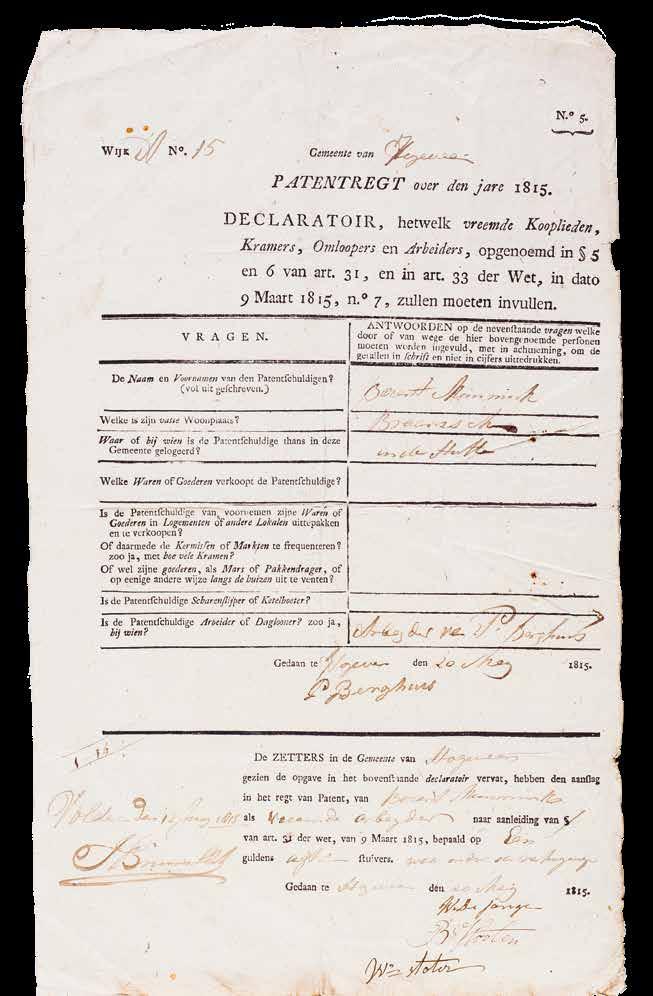 N.o 5.
Wijk No. 15 Gemeente van
PATENTREGT over den jare 1815.
DECLARATOIR, hetwelk vreemde Kooplieden,
Kramers, Omloopers en Arbeiders, opgenoemd in § 5
en 6 van art. 31, en in art. 33 der Wet, in dato
9 Maart 1815, n.o 7, zullen moeten invullen.
VRAGEN.
ANTWOORDEN op de nevenstaande vragen welke
door of van wege de hier bovengenoemde personen
moeten worden ingevuld, met in achtneming, om de
getallen in schrift en niet in cijfers uittedrukken.
De Naam en Voornamen van den Patentschuldigen?
(vol uit geschreven.)
Berent
Welke is zijn vaste Woonplaats?
Waar of bij wien is de Patentschuldige thans in deze
Gemeente gelogeerd?
in de
Welke Waren of Goederen verkoopt de Patentschuldige?
Is de Patentschuldige van voornemen zijne Waren of
Goederen in Logementen of andere Lokalen uittepakken
en te verkoopen?
Of daarmede de Kermissen of Markten te frequenteren?
zoo ja, met hoe vele Kramen?
Of wel zijne goederen, als Mars of Pakkendrager, of
op eenige andere wijze langs de huizen uit te venten?
Is de Patentschuldige Scharenslijper of Ketelboeter?
Is de Patentschuldige Arbeider of Daglooner? zoo ja,
bij wien?
Arbeyder van P. Berghuis
Gedaan te den 20 Mey 1815.
P Berghuis
De ZETTERS in de Gemeente van
gezien de opgave in het bovenstaande declaratoir vervat, hebben den aanslag
in het regt van Patent, van Berent
als arbeyder naar aanleiding van §
van art. 31 der wet, van 9 Maart 1815, bepaald op Een
guldens stuivers.
Gedaan te den 20 Mey 1815.
W. de Jonge
Wm stoter